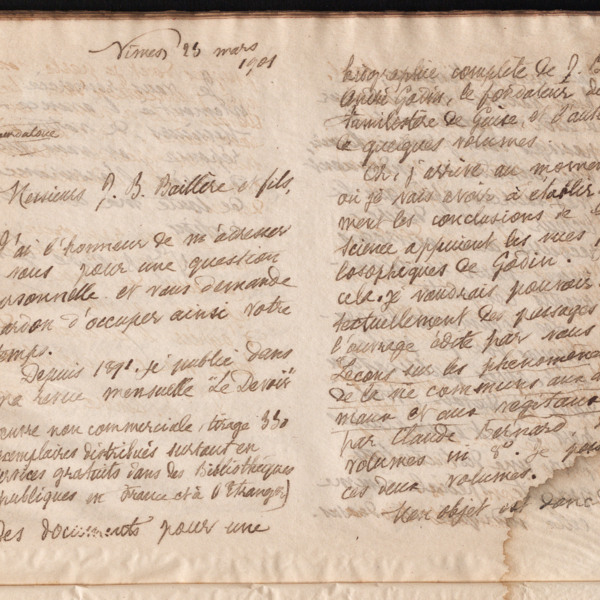 Nîmes 23 mars
1901
Messieurs J. B. Baillère et fils,
J'ai l'honneur de m'adresser
à vous pour une question
personnelle et vous demande
pardon d'occuper ainsi votre
temps.
Depuis 1891 je publie dans
une revue mensuelle "Le Devoir"
œuvre non commerciale, tirage 330
exemplaires distribués surtout en
services gratuits dans des Bibliothèques
publiques en France et à l'Etranger)
des documents pour une
biographie complète de J. B.
André Godin, le fondateur du
familistère de Guise, et d'auteur
de quelques volumes.
Or, j'arrive au moment
où je vais avoir à établir
ment les conclusions de la
science appuient les vues
losophiques de Godin.
cela, je voudrais pouvoir
textuellement des passages
l'ouvrage édité par vous
Leçons sur les phénomènes
de la vie communs aux a
maux et aux végétaux
par Claude Bernard
volumes in 8°. Je
ces deux volumes.
Mon objet est dans